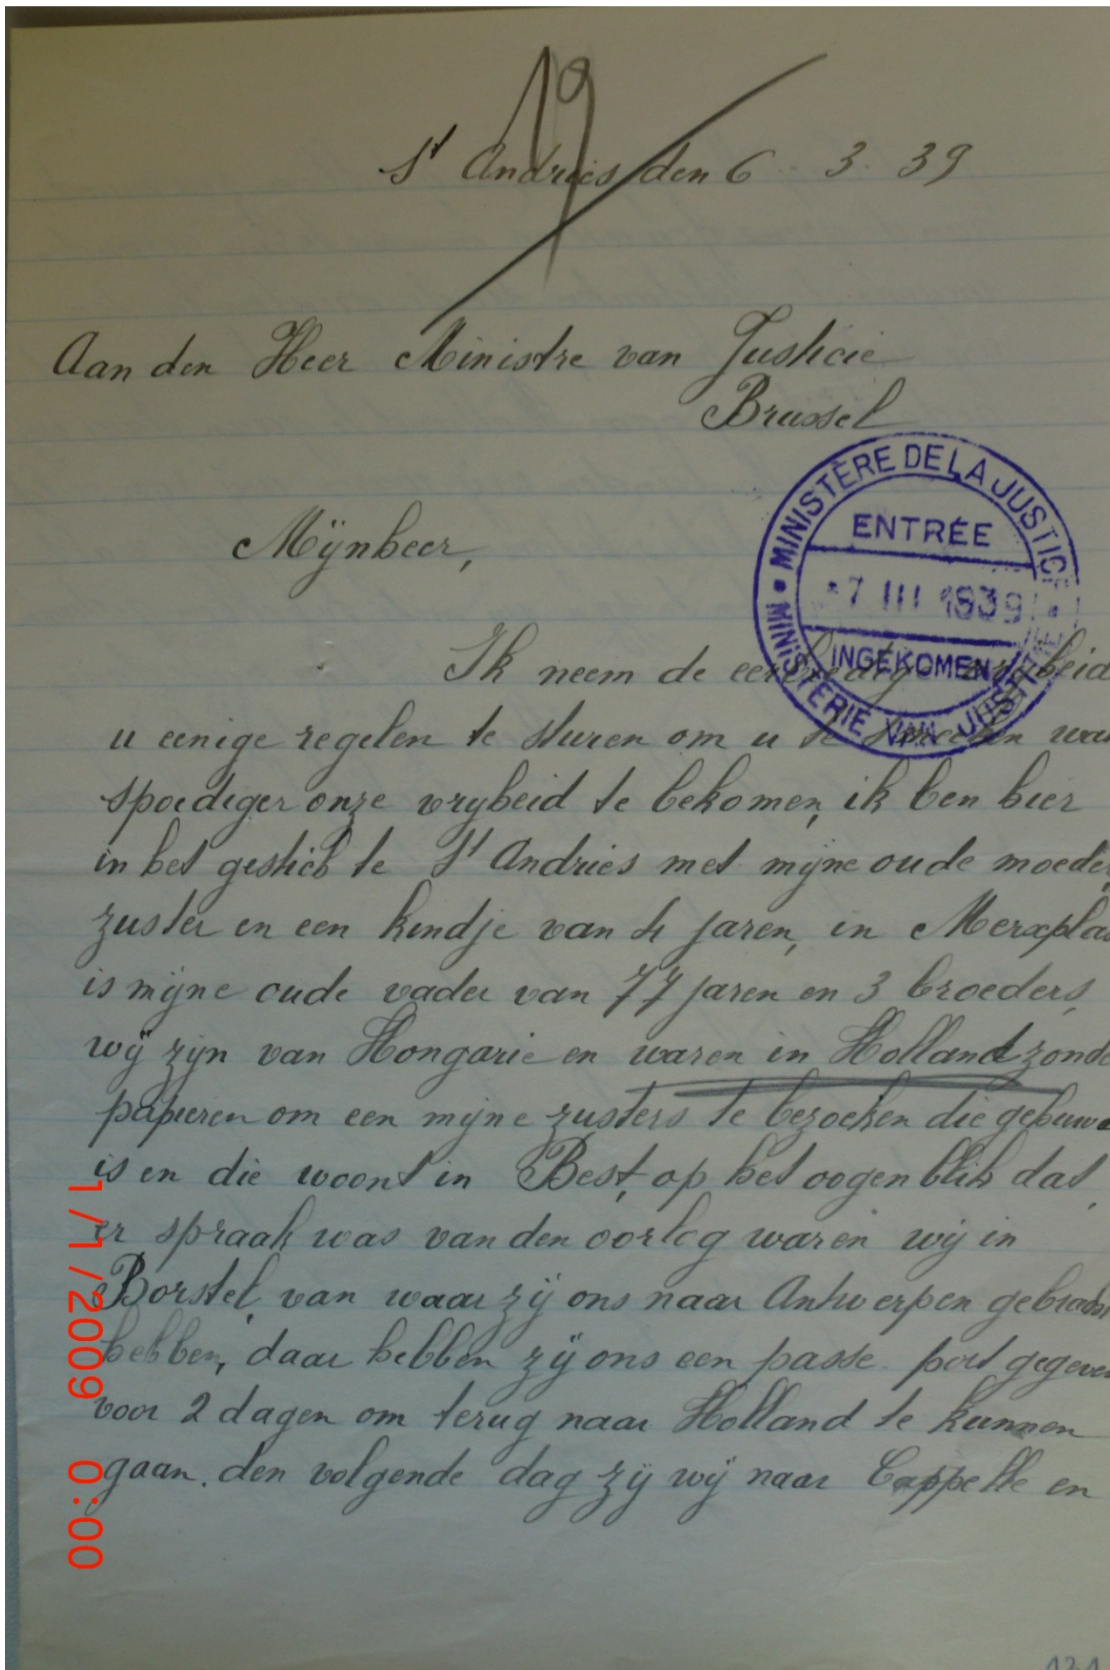 19
St Andries den 6 3 39
Aan den Heer Ministre van Justicie
Brussel
MINISTÈRE DE LA JUSTICE
ENTRÉE
-7 III 1939
INGEKOMEN
MINISTERIE VAN JUSTITIE
Mÿnheer,
Ik neem de eerbiedige vrybeid
u eenige regelen te sturen om u te smeeken wa
spoediger onze vrybeid te bekomen, ik ben hier
in het gesticht te St Andries met mijne oude moeder
zuster en een kindje van 4 jaren, in Merxpla
is mijne oude vader van 77 jaren en 3 broeders,
wij zijn van Hongarie en waren in Holland zonde
papieren om een mijne zusters te bezoeken die gehuwd
is en die woont in Best, op het oogenblik dat
er spraak was van den oorlog waren wij in
Borstel, van waar zij ons naar Antwerpen gebracht
hebben, daar hebben zij ons een passe port gegeven
voor 2 dagen om terug naar Holland te kunnen
gaan. den volgende dag zij wij naar Cappelle en
1/1/2009 0:00